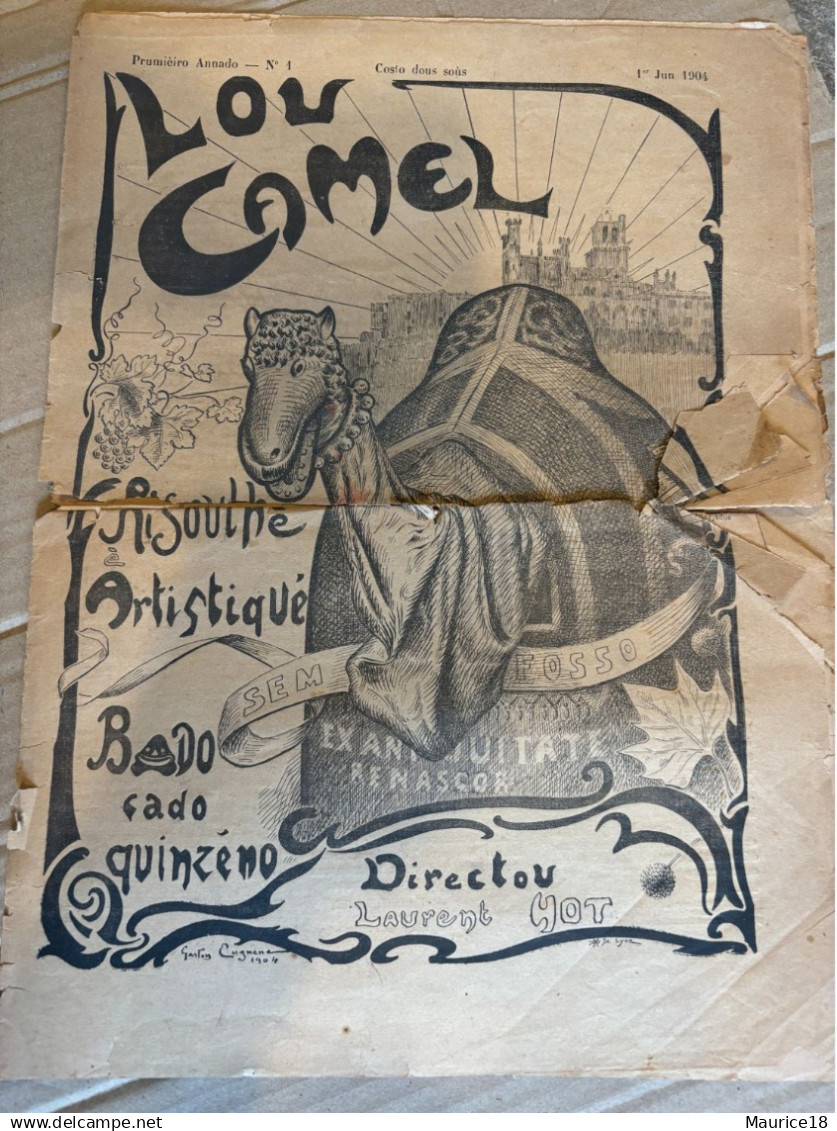 Prumièiro Annado — Nº 1 Costo dous soùs 1er Jun 1904
LOU
CAMEL
Risoulhé
é
Artistiqué
SEM FOSSO
BADO
cado
quinzéno
EX ANTIQUITATE
RENASCOR
Directou
Laurent HOT
Gaston Cugnenc
1904
Maurice18